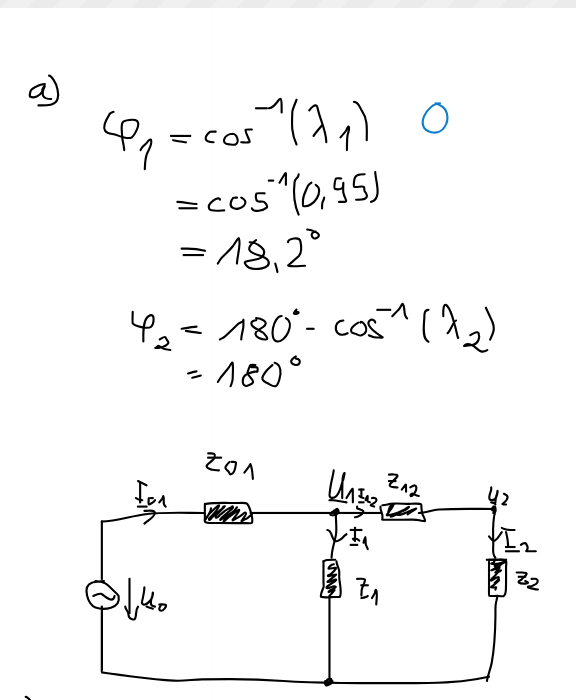 a)
φ₁ = cos⁻¹(λ₁) O
= cos⁻¹(0,95)
= 18,2°
φ₂ = 180° - cos⁻¹(λ₂)
= 180°
Z₀₁
I₀₁
U₁ I₁₂ Z₁₂ U₂
I₁ I₂
U₀ Z₁ Z₂